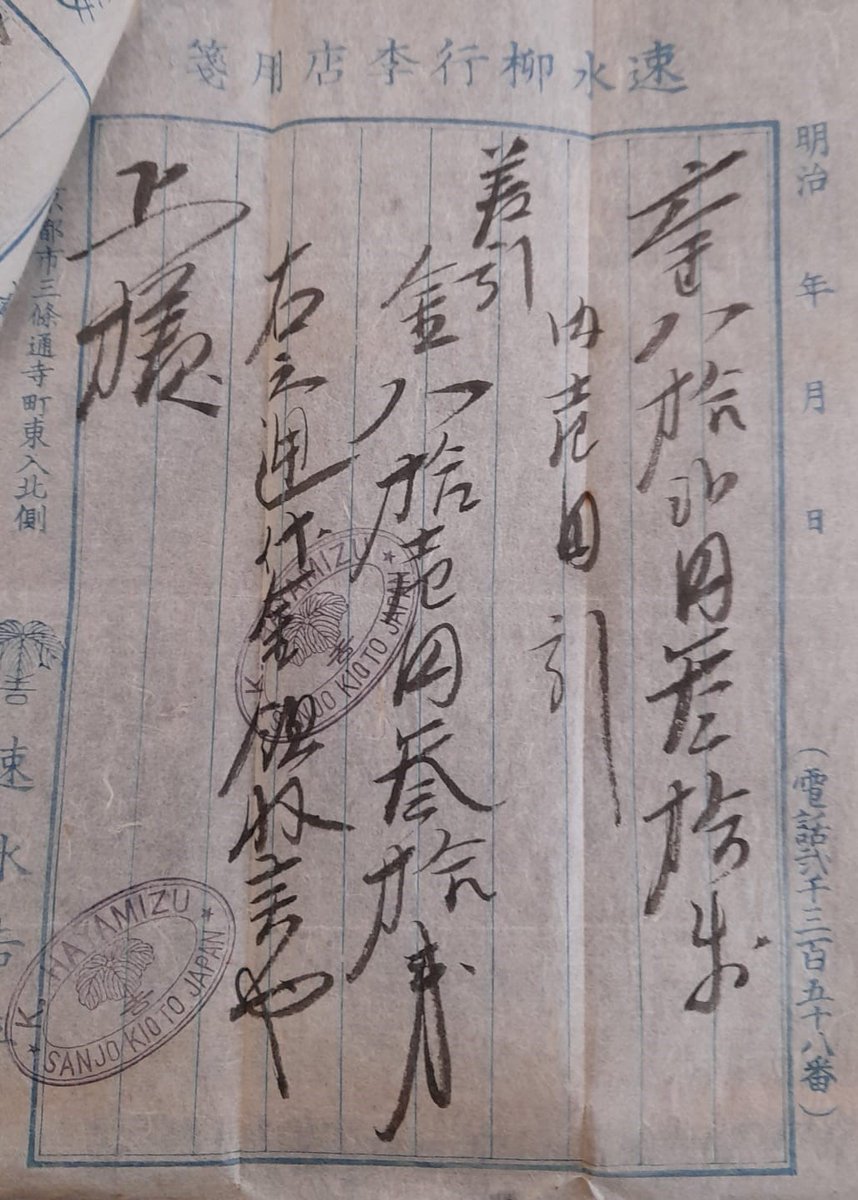 速水柳行李店用箋
明治 年 月 日
(電話弐千三百五十八番)
八拾弐円参拾銭
内壱円 引
差引
金八拾壱円参拾銭
右之通代金領収也
上様
都市三條通寺町東入北側
吉
速水吉
K. HAYAMIZU
吉
SANJO KIOTO JAPAN
K. HAYAMIZU
吉
SANJO KIOTO JAPAN